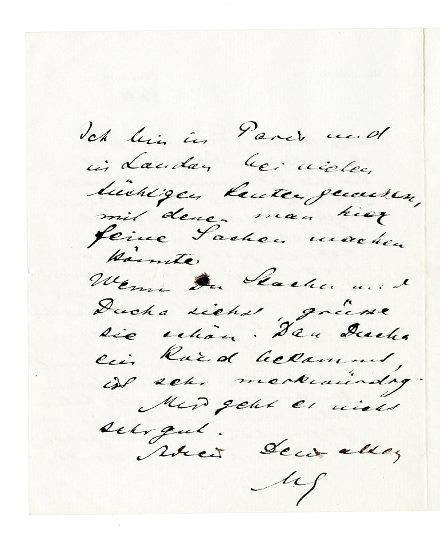 Ich bin in Paris und
in London bei vielen
tüchtigen Leuten gewesen,
mit denen man hier
feine Sachen machen
könnte
Wenn Du Stachu und
Ducha siehst, grüsse
sie schön. Dass Ducha
ein Kind bekommt,
ist sehr merkwürdig.
Mir geht es nicht
sehr gut.
Adieu Dein alter
MG